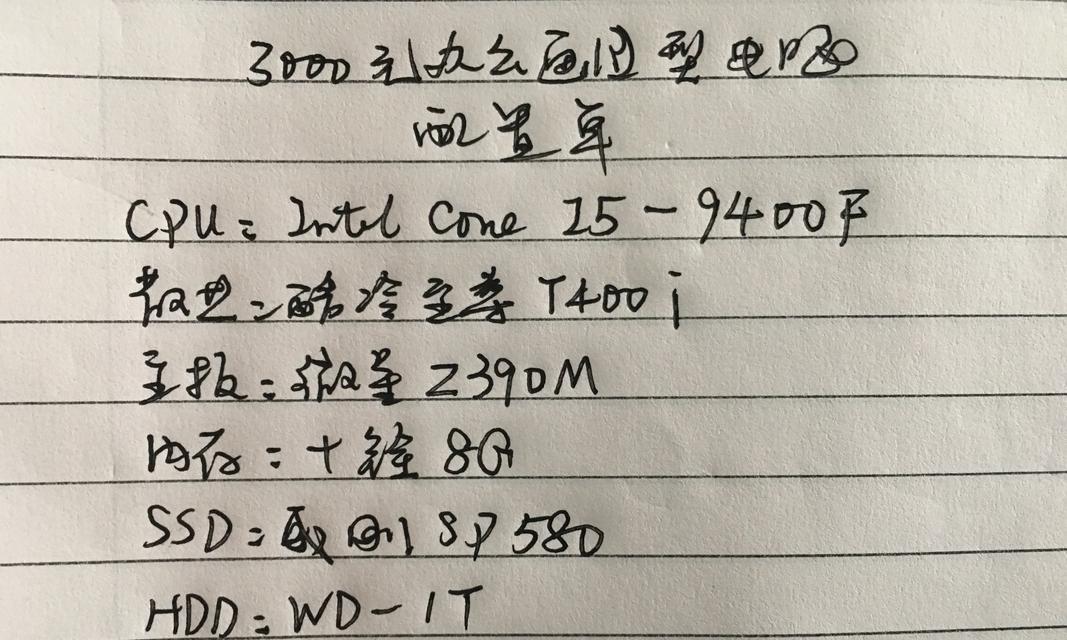 3000元办公通用型电脑
配置单
CPU: Intel Core I5-9400F
散热:酷冷至尊 T400i
主板:微星 Z390M
内存:十铨 8G
SSD: SP580
HDD: WD-1T